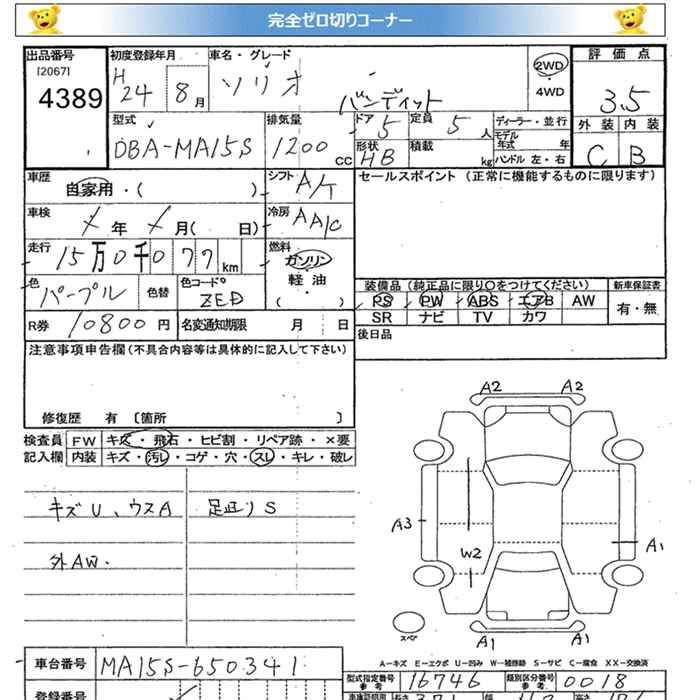 完全ゼロ切りコーナー
出品番号 初度登録年月 車名・グレード 評価点
[2067] H ソリオ 2WD
4389 24 8月 バンディット 4WD 3.5
型式 排気量 ドア 5 定員 5人 ディーラー・並行 外装 内装
DBA-MA15S 1200cc 形状 HB 積載 kg モデル年式 年 C B
ハンドル 左・右
車歴 自家用・( ) シフト A/T セールスポイント (正常に機能するものに限ります)
車検 年 月( 日) 冷房 AA/C
走行 15万0千077km 燃料 ガソリン
軽油
( )
色 パープル 色替 色コードNo ZED 装備品(純正品に限り○をつけてください) 新車保証書
PS PW ABS エアB AW 有・無
R券 10800円 名変通知期限 月 日 SR ナビ TV カワ
注意事項申告欄(不具合内容等は具体的に記入して下さい) 後日品
修復歴 有 〔箇所 〕
検査員 FW キズ・飛石・ヒビ割・リペア跡・×要
記入欄 内装 キズ・汚レ・コゲ・穴・スレ・キレ・破レ
キズU、ウスA 足回りS
外AW.
A2 A2
A3 A1
W2
スペア
A1 A1
A-キズ E-エクボ U-凹み W-補修跡 S-サビ C-腐食 XX-交換済
車台番号 MA15S-650341 型式指定番号 参考 16746 類別区分番号 参考 0018
登録番号